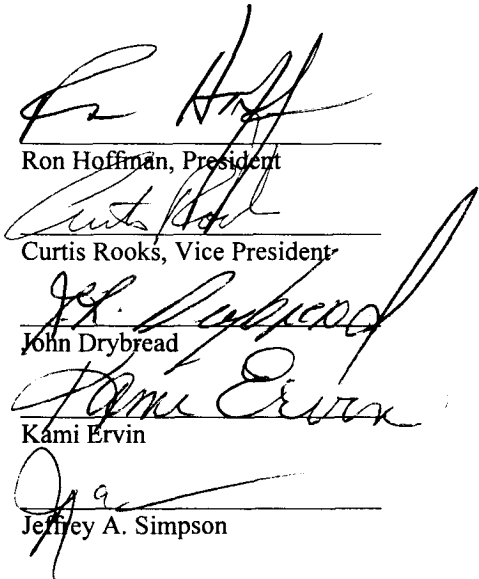 Ron Hoff
Ron Hoffman, President
Curtis Rook
Curtis Rooks, Vice President
Drybread
John Drybread
Kami Ervin
Kami Ervin
Jeffrey A. Simpson